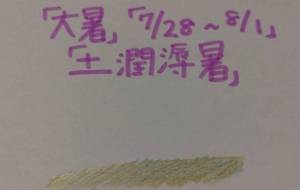 「大暑」「7/28~8/1」
「土潤溽暑」